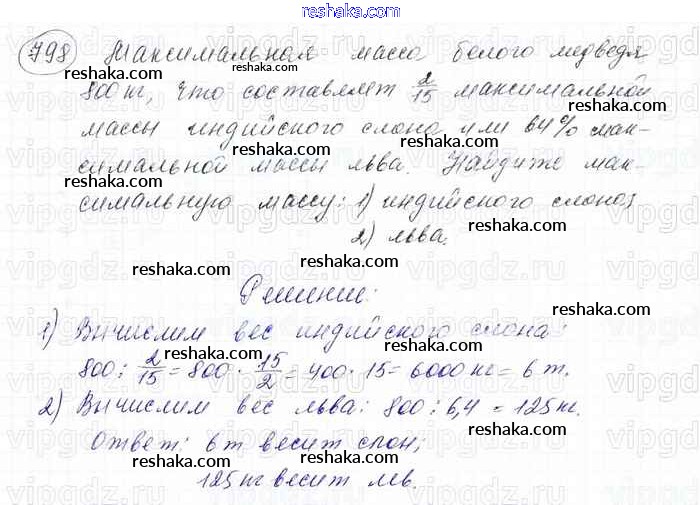 reshaka.com
798 Максимальная масса белого медведя
reshaka.com reshaka.com
800 кг, что составляет 2/15 максимальной
reshaka.com
массы индийского слона или 64% мак-
reshaka.com
симальной массы льва. Найдите мак-
reshaka.com
симальную массу: 1) индийского слона;
reshaka.com
2) льва.
reshaka.com reshaka.com
Решение:
reshaka.com
1) Вычислим вес индийского слона:
reshaka.com
800 : 2/15 = 800 · 15/2 = 400 · 15 = 6000 кг = 6 т.
reshaka.com reshaka.com
2) Вычислим вес льва: 800 : 6,4 = 125 кг.
reshaka.com
Ответ: 6 т весит слон;
reshaka.com reshaka.com
125 кг весит лев.
reshaka.com
vipgdz.ru